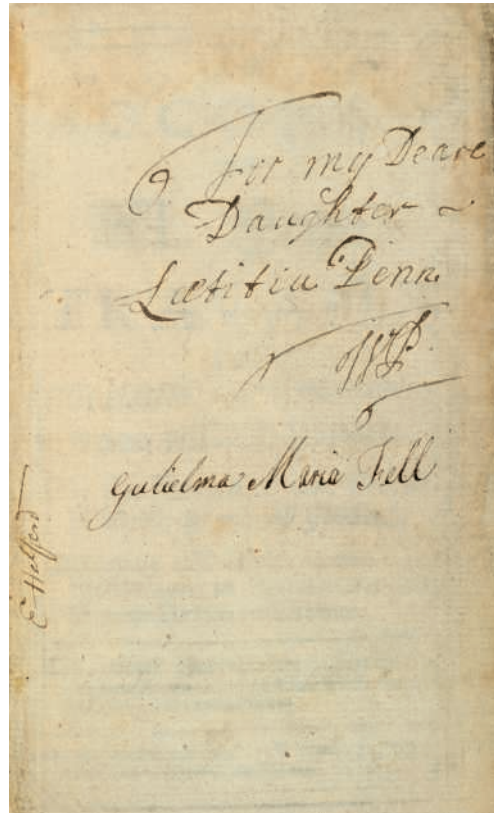 For my Deare
Daughter ~
Lætitia Penn
WP.
Gulielma Maria Fell
E Helferd